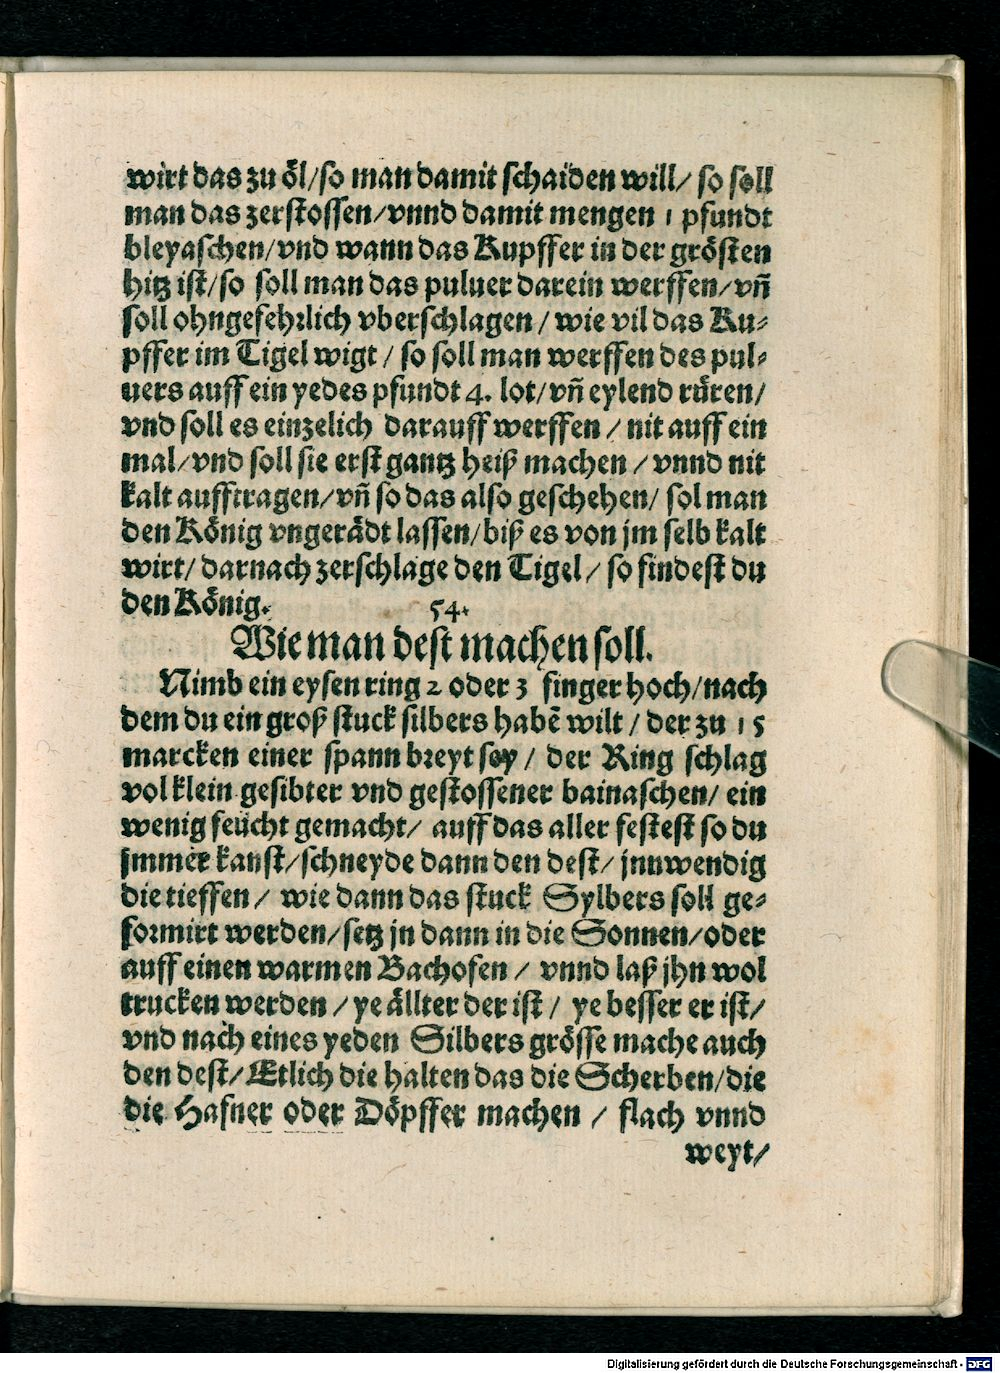 wirt das zu öl/so man damit schaiden will/ so soll
man das zerstossen/vnnd damit mengen 1 pfundt
bleyaschen/vnd wann das Kupffer in der grösten
hitz ist/so soll man das puluer darein werffen/vñ
soll ohngefehrlich vberschlagen / wie vil das Ku-
pffer im Tigel wigt / so soll man werffen des pul-
uers auff ein yedes pfundt 4. lot/vñ eylend rüren/
vnd soll es einzelich darauff werffen / nit auff ein
mal/vnd soll sie erst gantz heiß machen / vnnd nit
kalt aufftragen/vñ so das also geschehen/ sol man
den König vngerädt lassen/biß es von jm selb kalt
wirt/ darnach zerschlage den Tigel / so findest du
den König. 54.
Wie man dest machen soll.
Nimb ein eysen ring 2 oder 3 finger hoch/nach
dem du ein groß stuck silbers habẽ wilt / der zu 15
marcken einer spann breyt sey / der Ring schlag
vol klein gesibter vnd gestossener bainaschen/ ein
wenig feücht gemacht/ auff das aller festest so du
jmmer kanst/schneyde dann den dest/ jnnwendig
die tieffen / wie dann das stuck Sylbers soll ge-
formirt werden/setz jn dann in die Sonnen/oder
auff einen warmen Bachofen / vnnd laß jhn wol
trucken werden / ye ällter der ist / ye besser er ist/
vnd nach eines yeden Silbers grösse mache auch
den dest/ Etlich die halten das die Scherben/die
die Hafner oder Döpffer machen / flach vnnd
weyt/
Digitalisierung gefördert durch die Deutsche Forschungsgemeinschaft - DFG